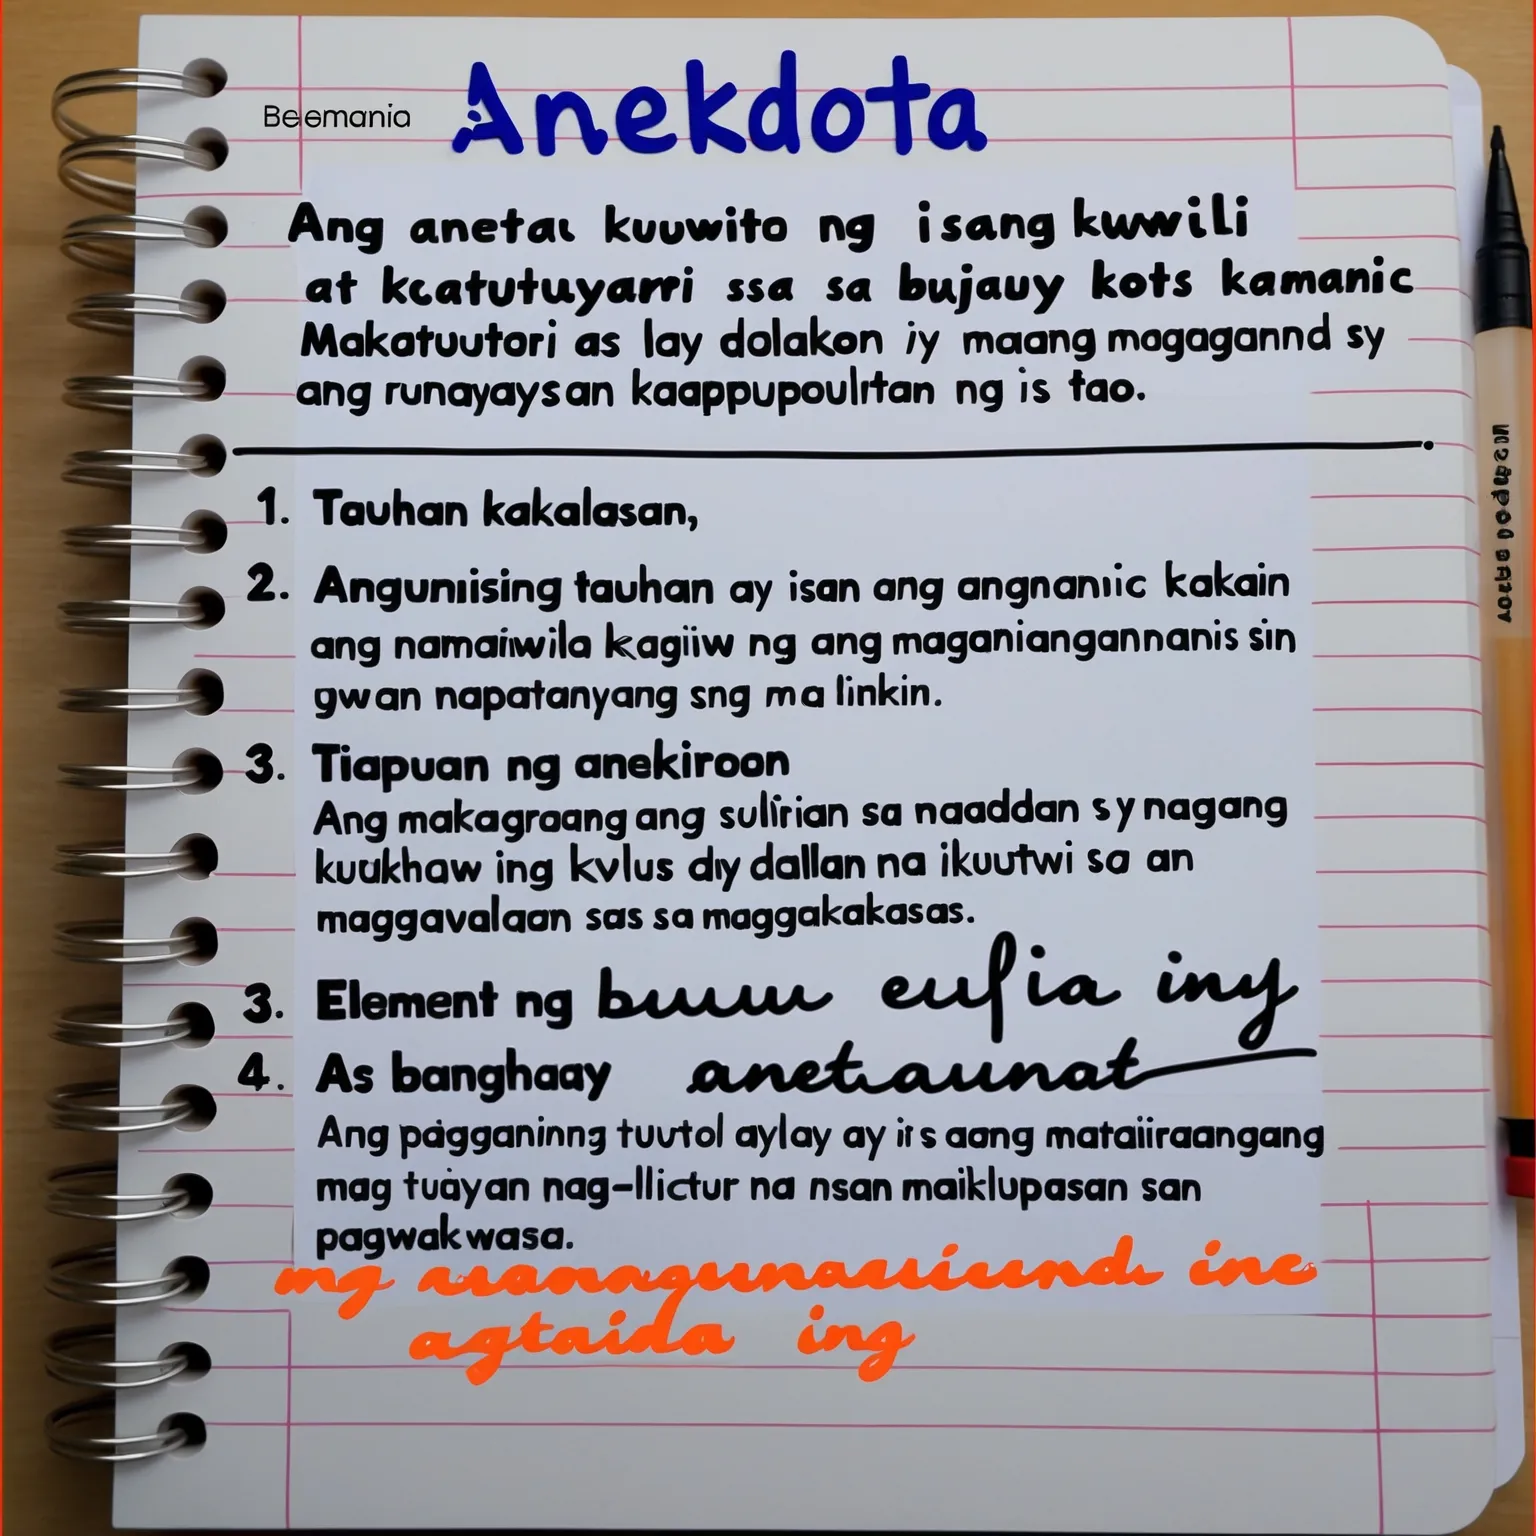 Beemania
Anekdota
Ang anetaı kuuwito ng isang kuwili
at kcatutuyarri ssa sa bujauy kots kamanic
Makatuutori as lay dolakon iy maang magagannd sy
ang runayaysan kaappupoulrtan ng is tao.
1. Tauhan kakalasan,
2. Angunıising tauhan ay isan ang angnanic kakain
ang namaiwila kagiiw ng ang maganiangannanis sin
gwan napatanyang sng ma linkin.
3. Tiapuan ng anekiroon
Ang makagraang ang sulirian sa naaddan sy nagang
kuukhaw ing kvlus dıy dallan na ikuutwi sa an
maggavalaan sas sa maggakakasas.
3. Element ng buuuu eufia iny
4. As banghaay anetaunat
Ang pagganinng tuutol aylay ay irs aang mataiiraangang
mag tuàyan nag-llictur na nsan maiklupasan san
pagwakwasa.
ing ine
agtaida ing